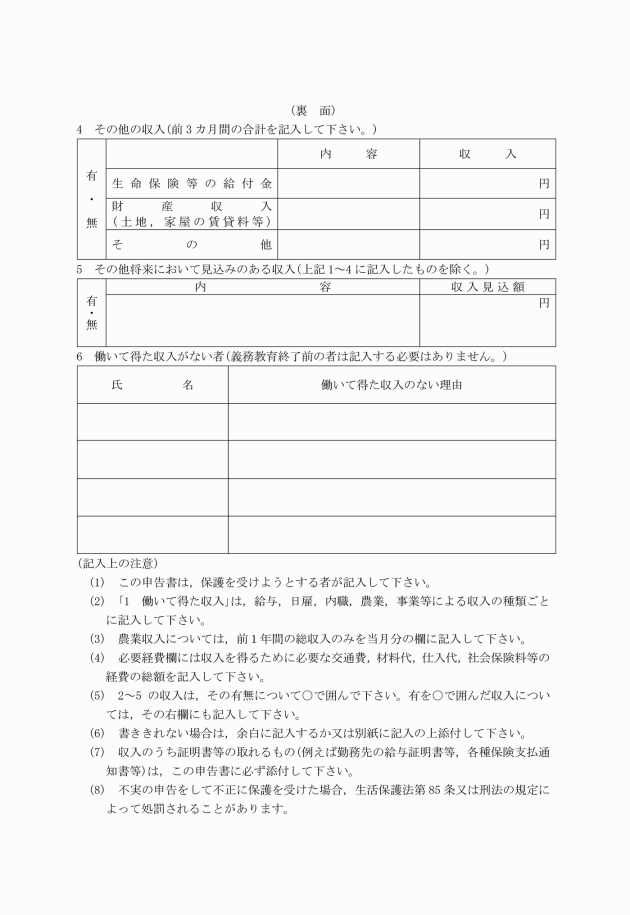 (裏　面)
4　その他の収入(前３カ月間の合計を記入して下さい。)
有・無
内　容　収　入
生命保険等の給付金　円
財産収入
(土地，家屋の賃貸料等)　円
その他　円
5　その他将来において見込みのある収入(上記１〜４に記入したものを除く。)
有・無
内　容　収入見込額
円
6　働いて得た収入がない者(義務教育終了前の者は記入する必要はありません。)
氏　名　働いて得た収入のない理由
(記入上の注意)
(1)　この申告書は，保護を受けようとする者が記入して下さい。
(2)　「1　働いて得た収入」は，給与，日雇，内職，農業，事業等による収入の種類ごと
に記入して下さい。
(3)　農業収入については，前１年間の総収入のみを当月分の欄に記入して下さい。
(4)　必要経費欄には収入を得るために必要な交通費，材料代，仕入代，社会保険料等の
経費の総額を記入して下さい。
(5)　2〜5 の収入は，その有無について〇で囲んで下さい。有を〇で囲んだ収入につい
ては，その右欄にも記入して下さい。
(6)　書ききれない場合は，余白に記入するか又は別紙に記入の上添付して下さい。
(7)　収入のうち証明書等の取れるもの(例えば勤務先の給与証明書等，各種保険支払通
知書等)は，この申告書に必ず添付して下さい。
(8)　不実の申告をして不正に保護を受けた場合，生活保護法第 85 条又は刑法の規定に
よって処罰されることがあります。